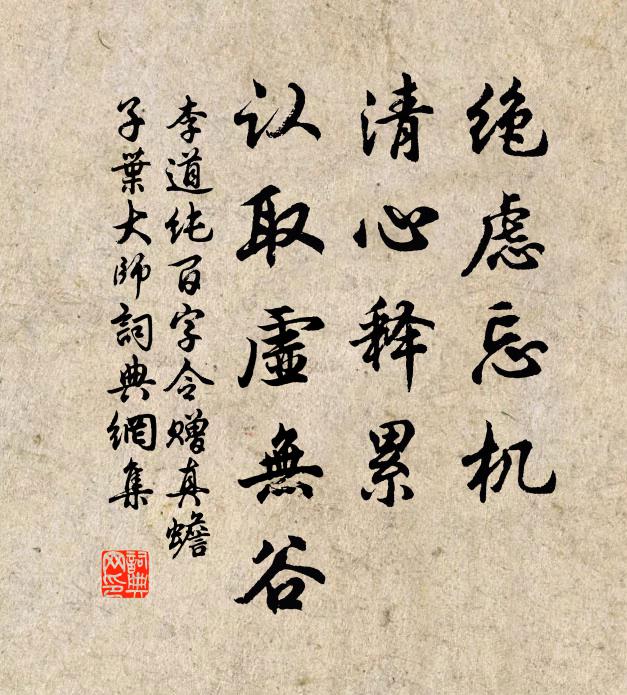 绝虑忘机
清心释累
认取虚無谷
李道纯百字令赠真蟾
子葉大師詞典網集
詞典网印